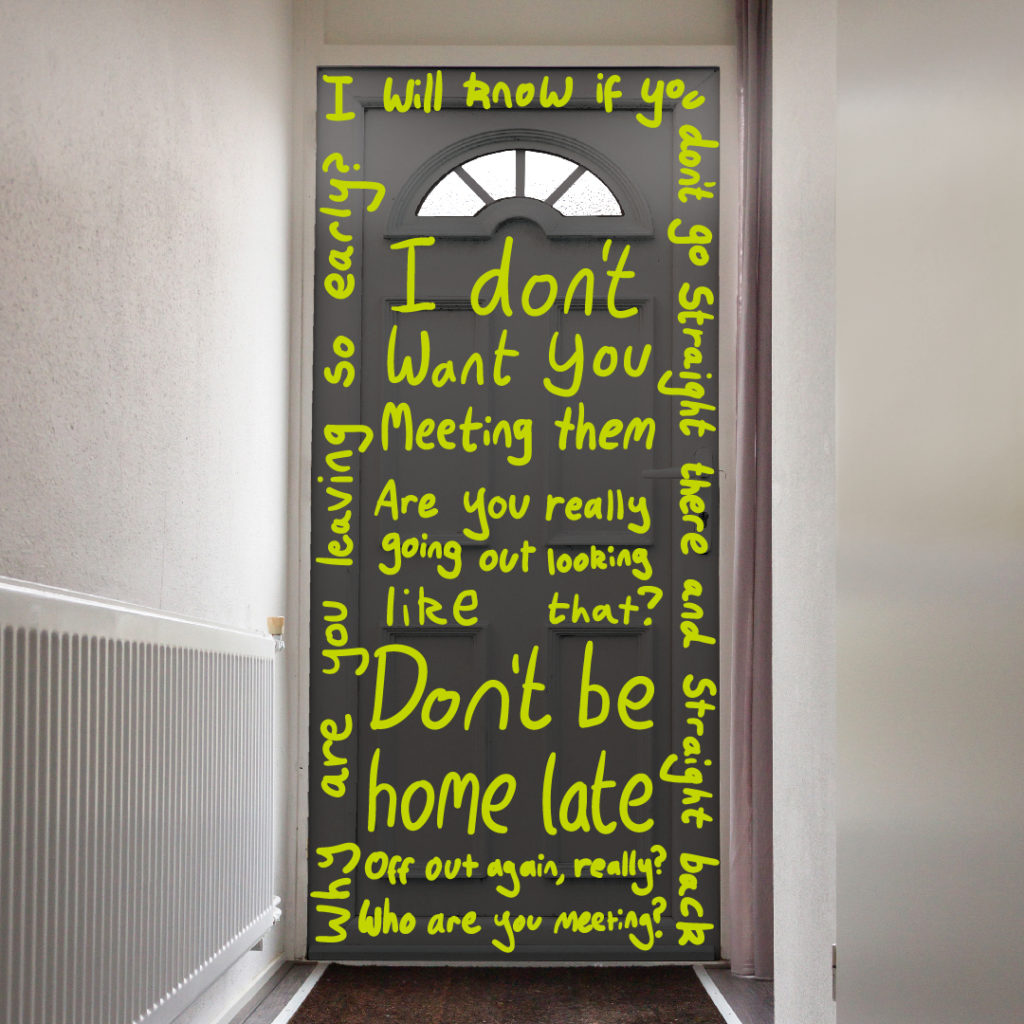 Why are you leaving so early?
I will know if you
don't go Straight there and Straight back
I don't
Want you
Meeting them
Are you really
going out looking
like that?
Don't be
home late
Off out again, really?
Who are you meeting?